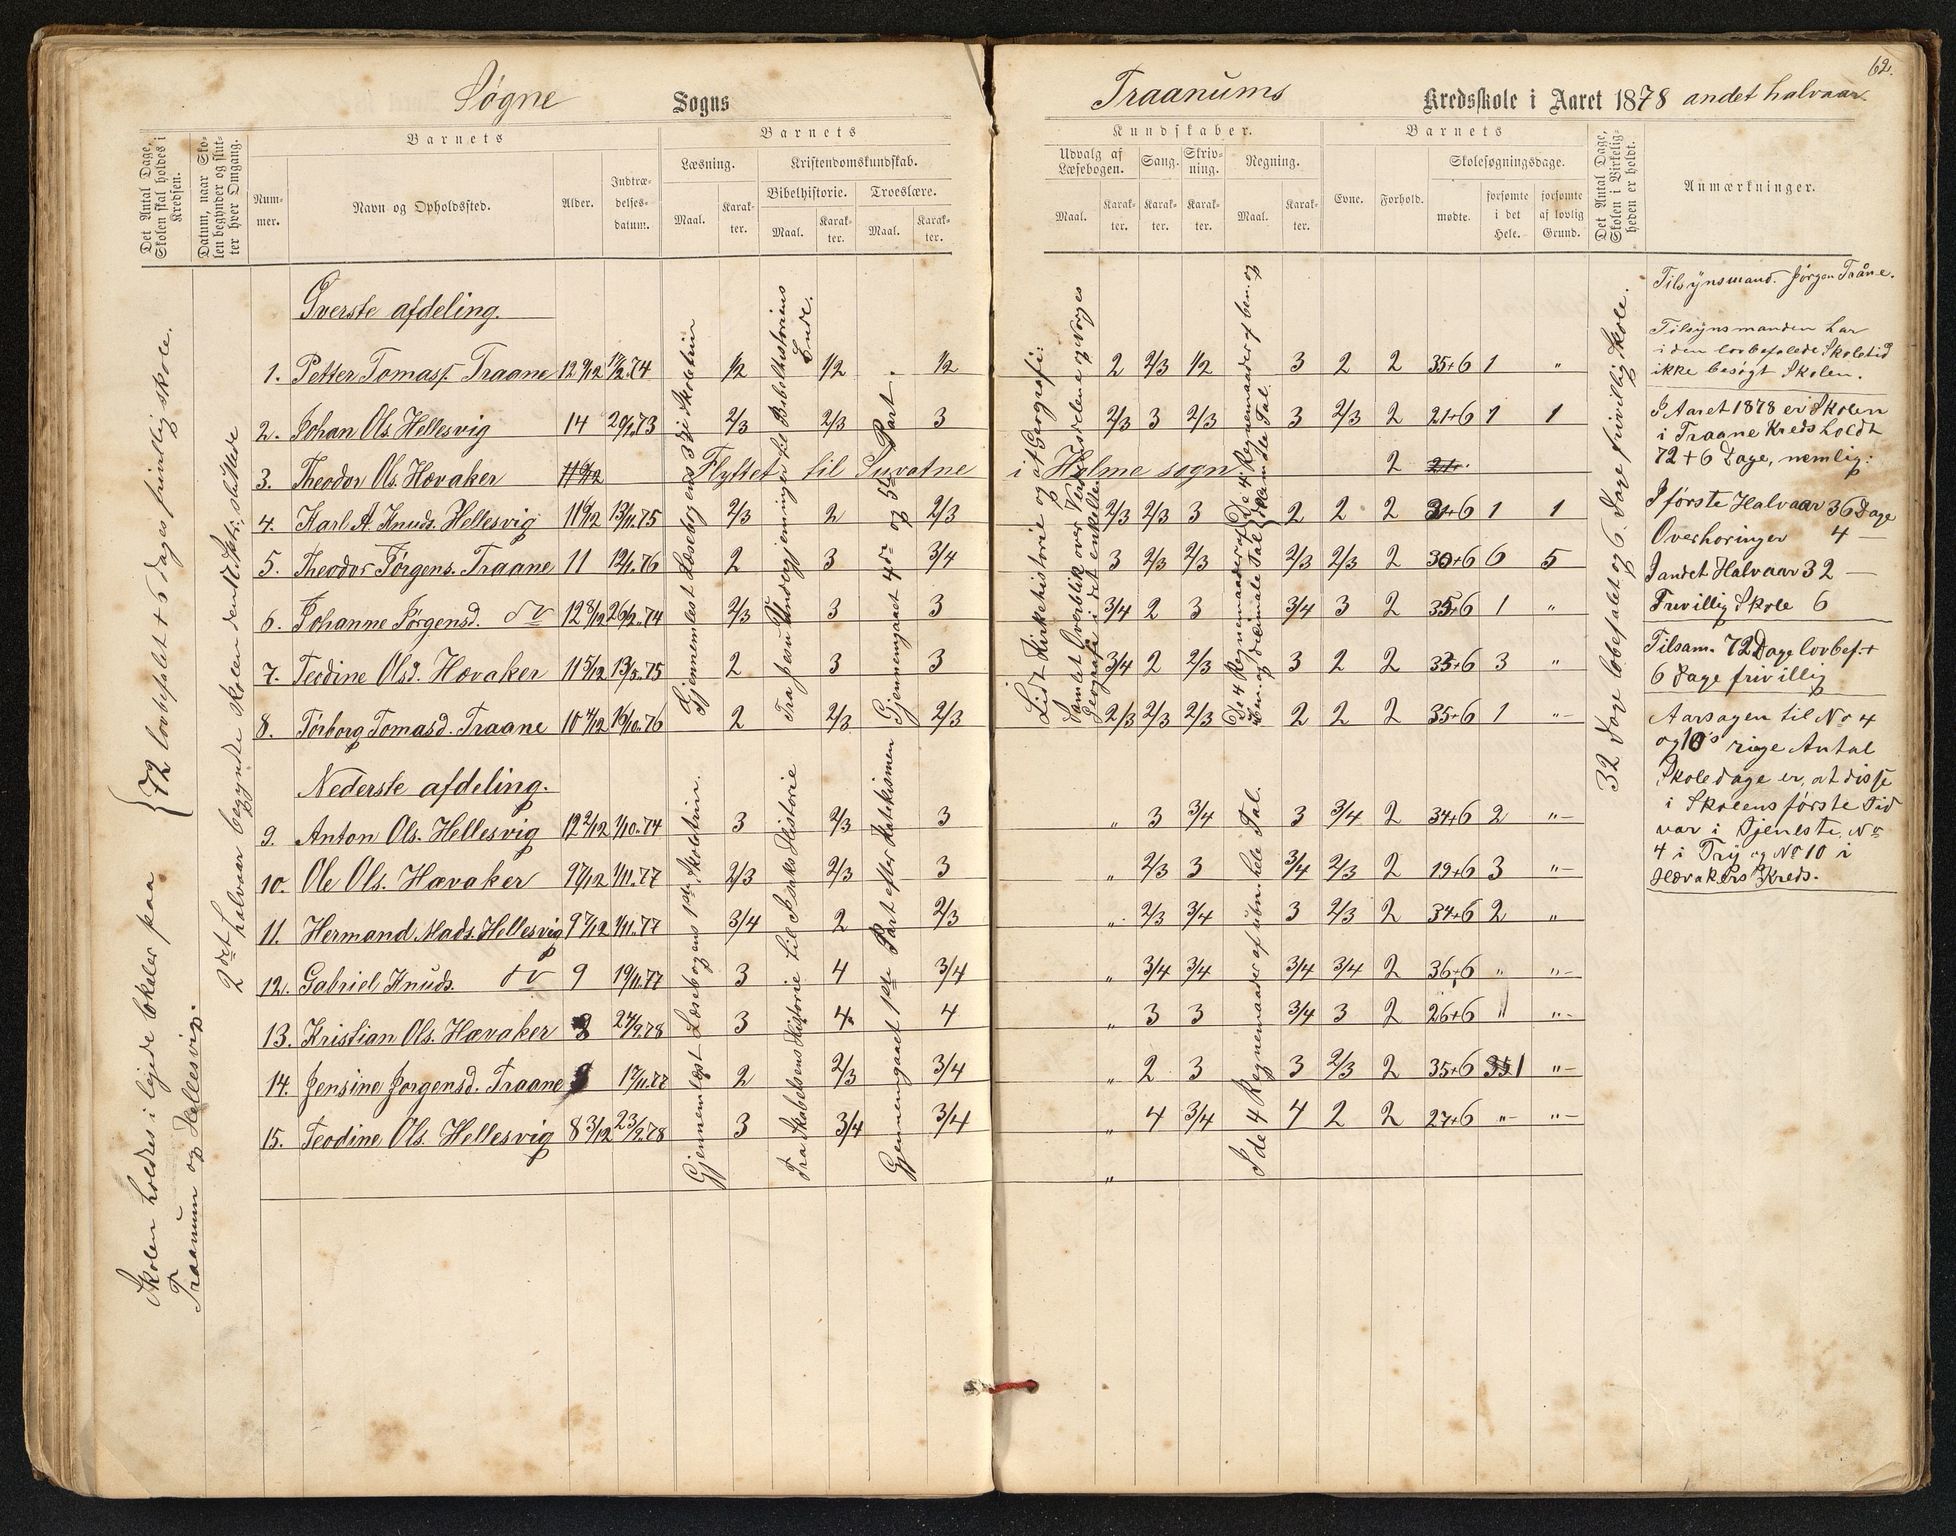 62.
Søgne Sogns
Traanums Kredsskole i Aaret 1878 andet halvaar.
Det Antal Dage, Skolen skal holdes i Kredsen.
Datum, naar Skolen begynder og slutter hver Omgang.
Barnets
Nummer.
Navn og Opholdssted.
Alder.
Indtrædelsesdatum.
Barnets
Læsning.
Maal.
Karakter.
Kristendomskundskab.
Bibelhistorie.
Maal.
Karakter.
Troeslære.
Maal.
Karakter.
Kundskaber.
Udvalg af Læsebogen.
Maal.
Karakter.
Sang.
Karakter.
Skrivning.
Karakter.
Regning.
Maal.
Karakter.
Barnets
Evne.
Forhold.
Skolesøgningsdage.
mødte.
forsømte i det Hele.
forsømte af lovlig Grund.
Det Antal Dage, Skolen i Virkeligheden er holdt.
Anmærkninger.
Skolen holdes i lejede lokaler paa
Traanum og Hellesvig.
{72 lovbefalet + 6 dages frivillig skole.
2det halvaar begyndte skolen den
Øverste afdeling.
1. Petter Tomass. Traane 12 9/12 1/2 1/2 1/2 2 2/3 1/2 3 2 2 35+6 1 "
2. Johan Ols. Hellesvig 14 2/3 2/3 3 2/3 3 2/3 3 2/3 2 21+6 1 1
3. Theodor Ols. Hævaker Flyttet til i Holme sogn 2
4. Karl A. Knuds. Hellesvig 11 6/12 13/11.75 2/3 2 2/3 2/3 2/3 3 2 2 2 31+6 1 1
5. Theodor Jørgens. Traane 11 12/1.76 2 3 3/4 3 2/3 2/3 2/3 2/3 2 30+6 6 5
6. Johanne Jørgensd. dv 12 8/12 2/3 3 3 3/4 2 3 3/4 3 2 35+6 1 "
7. Teodine Olsd. Hævaker 11 5/12 2 3 3 3/4 2 2/3 3 2 2 33+6 3 "
8. Torborg Tomasd. Traane 10 4/12 16/10.76 2 2/3 2/3 2/3 2/3 2/3 2 2 2 35+6 1 "
Gjennemlæst Læsebogens 3die Skoletrin
Fra Jesu Undergjerninger til Bibelhistoriens Ende.
Gjennemgaaet 4de og 5te Part.
Lidt Kirkehistorie og Geografi:
Samlet Overblik over Verdensdelene og Norges
Geografi i det enkelte.
De 4 Regnemaader af ben. og
32 Dage lovbefalet og 6 Dage frivillig Skole.
Nederste afdeling.
9. Anton Ols. Hellesvig 12 2/12 1/10.74 3 2/3 3 " 3 3/4 3 3/4 2 34+6 2 "
10. Ole Ols. Hævaker 9 7/12 1/11.77 2/3 2/3 3 " 2/3 3 3/4 2/3 2 19+6 3 "
11. Hermand Mads. Hellesvig 9 7/12 1/11.77 3/4 2 2/3 " 2/3 3/4 3 2/3 2 34+6 2 "
12. Gabriel Knuds. dv 9 19/11.77 3 4 3/4 " 3/4 3/4 3/4 3/4 2 36+6 " "
13. Kristian Ols. Hævaker 8 24/9.78 3 4 4 " 3 3 3/4 3 2 26+6 " "
14. Jensine Jorgensd. Traane 17/11.77 2 2/3 3/4 " 2 3 3 2/3 2 35+6 1 "
15. Teodine Ols. Hellesvig 8 3/12 23/9.78 3 3/4 3/4 " 4 3/4 4 2 2 27+6 " "
"
Gjennemlæst Læsebogens 1ste Skoletrin.
Fra Skabelsens Historie til Isaks Historie
Gjennemgaaet 1ste Part efter Katekismen
I de 4 Regnemaader af ubn. hele Tal.
Tilsynsmand. Jörgen Tråne.
Tilsynsmanden har
i den lovbefalede Skoletid
ikke besøgt Skolen.
I Aaret 1878 er Skolen
i Traane Kreds holdt
72+6 Dage, nemlig:
I første Halvaar 36 Dage
Overhoringer 4 —
I andet Halvaar 32 —
Frivillig Skole 6
Tilsam. 72 Dage lovbef. +
6 Dage frivillig
Aarsagen til No 4
og 10's ringe Antal
Skoledage er, at disse
i Skolens første Tid
var i Tjeneste, No
4 i Try og No 10 i
Hævakers Kreds.